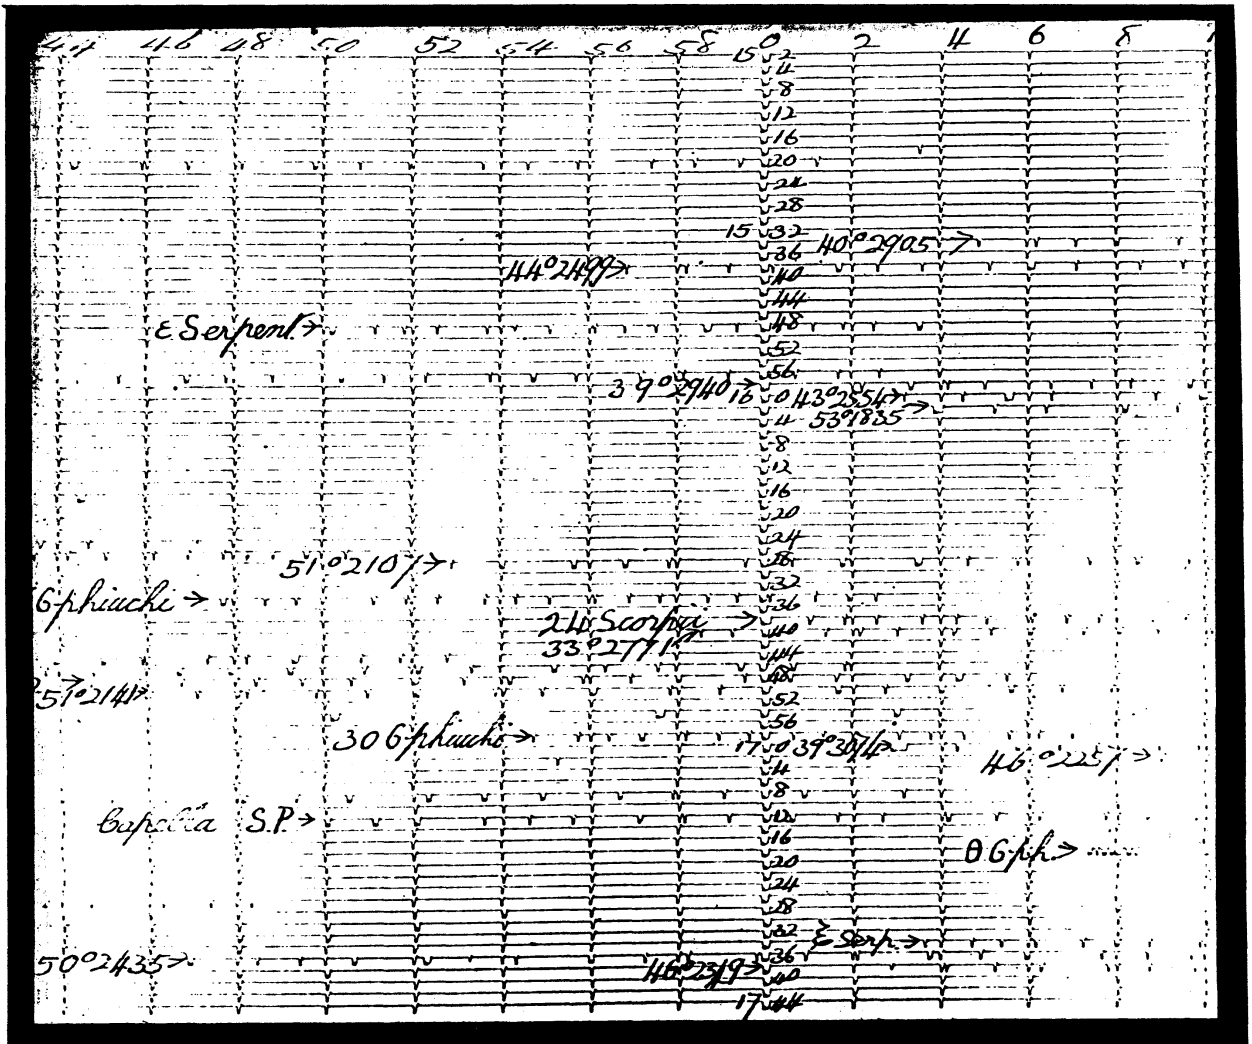 44 46 48 50 52 54 56 58 0 2 4 6 8
15 2
4
8
12
16
20
24
28
15 32
40°2905
36
44°2499
40
44
ε Serpent.
48
52
56
39°2940 16 0 43°2554
4 53°1835
8
12
16
20
24
51°2107 28
32
36
24 Scorpii
40
33°2771
44
48
51°2141
52
56
30 17 0 39°3074
46°2251
4
8
Capella S.P. 12
16
20
24
28
32 ξ Serp.
50°2435 36
46°2319 40
17 44